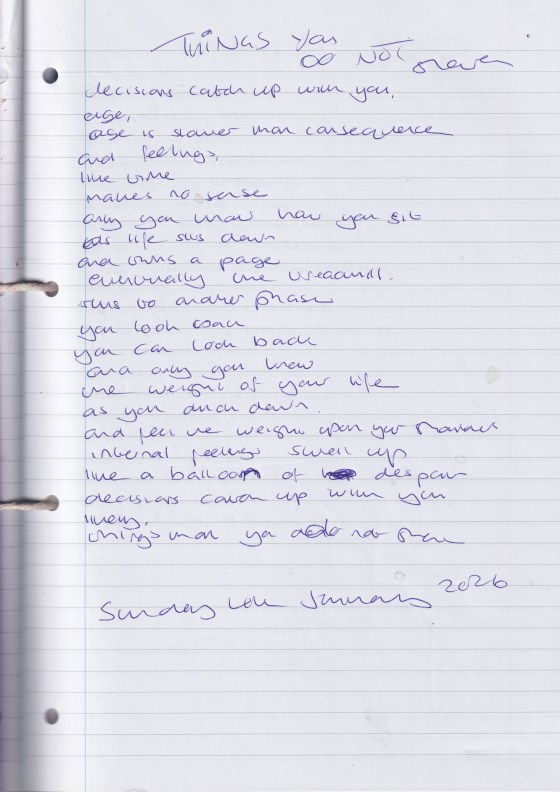 THINGS You
DO NOT Share
decisions catch up with you.
age,
age is slower than consequence
and feelings,
like time
makes no sense
only you know how you sit
as life sits down
and turns a page
eventually the treadmill.
turns to another phase
you look back
you can look back
and only you know
the weight of your life
as you duck down.
and feel the weight upon your shoulders
internal feelings swell up
like a balloon of despair
decisions catch up with you
likely.
things that you do not share
Sunday January 2026